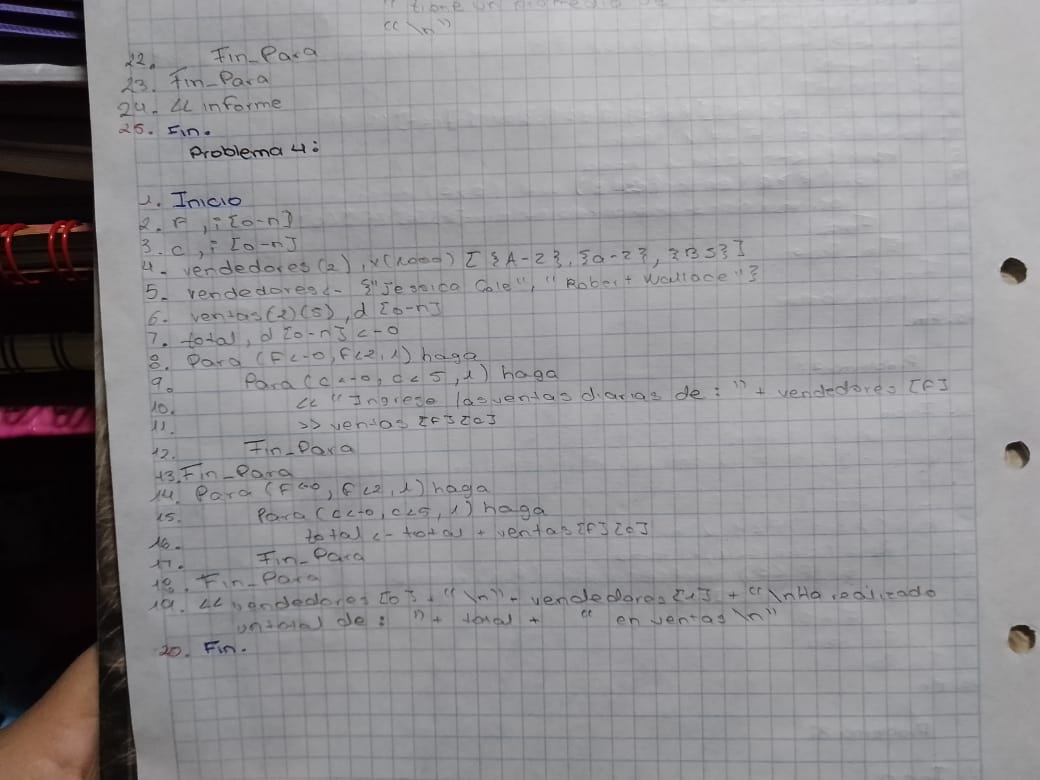 "\n"
22. Fin_Para
23. Fin_Para
24. << informe
25. Fin.
Problema 4:
1. Inicio
2. F, i [0-n]
3. c, i [0-n]
4. vendedores (2), x(1000) [{A-Z}, {a-z}, {BS}]
5. vendedores <- {"Jessica Cole", "Robert Wallace"}
6. ventas(2)(5), d [0-n]
7. total, d [0-n] <- 0
8. Para (F<-0, F<2, 1) haga
9. Para (c<-0, c<5, 1) haga
10. << "Ingrese las ventas diarias de: " + vendedores [F]
11. >> ventas [F][c]
12. Fin_Para
13. Fin_Para
14. Para (F<-0, F<2, 1) haga
15. Para (c<-0, c<5, 1) haga
16. total <- total + ventas [F][c]
17. Fin_Para
18. Fin_Para
19. << vendedores [0] + "\n" + vendedores [1] + "\nHa realizado
un total de: " + total + " en ventas \n"
20. Fin.